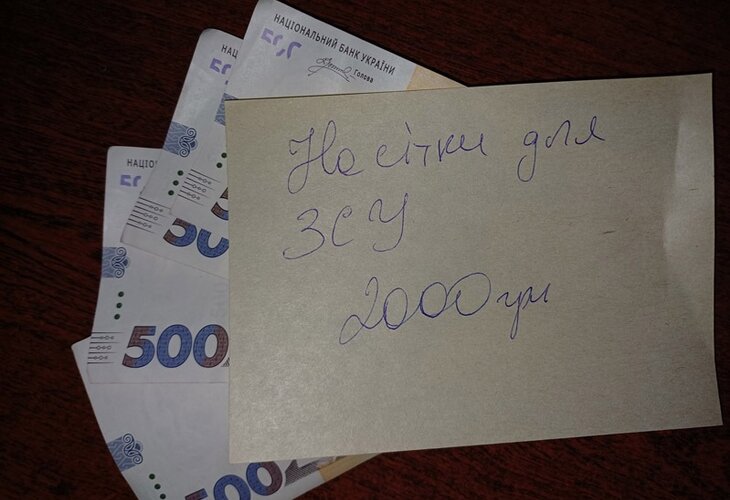 НАЦІОНАЛЬНИЙ БАНК УКРАЇНИ
Голова
НАЦ
НАЦІО
500
500
На сітки для
ЗСУ
2000 грн